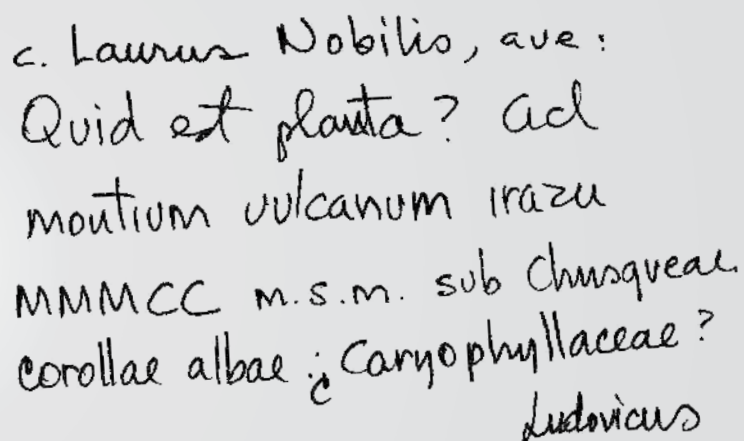 c. Laurus Nobilis, ave:
Quid est planta? ad
montium vulcanum irazu
MMMCC m.s.m. sub Chusqueae.
corollae albae: ¿Caryophyllaceae?
Ludovicus